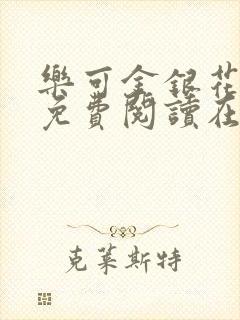 樂可金銀花
免費閱讀在
克萊斯特